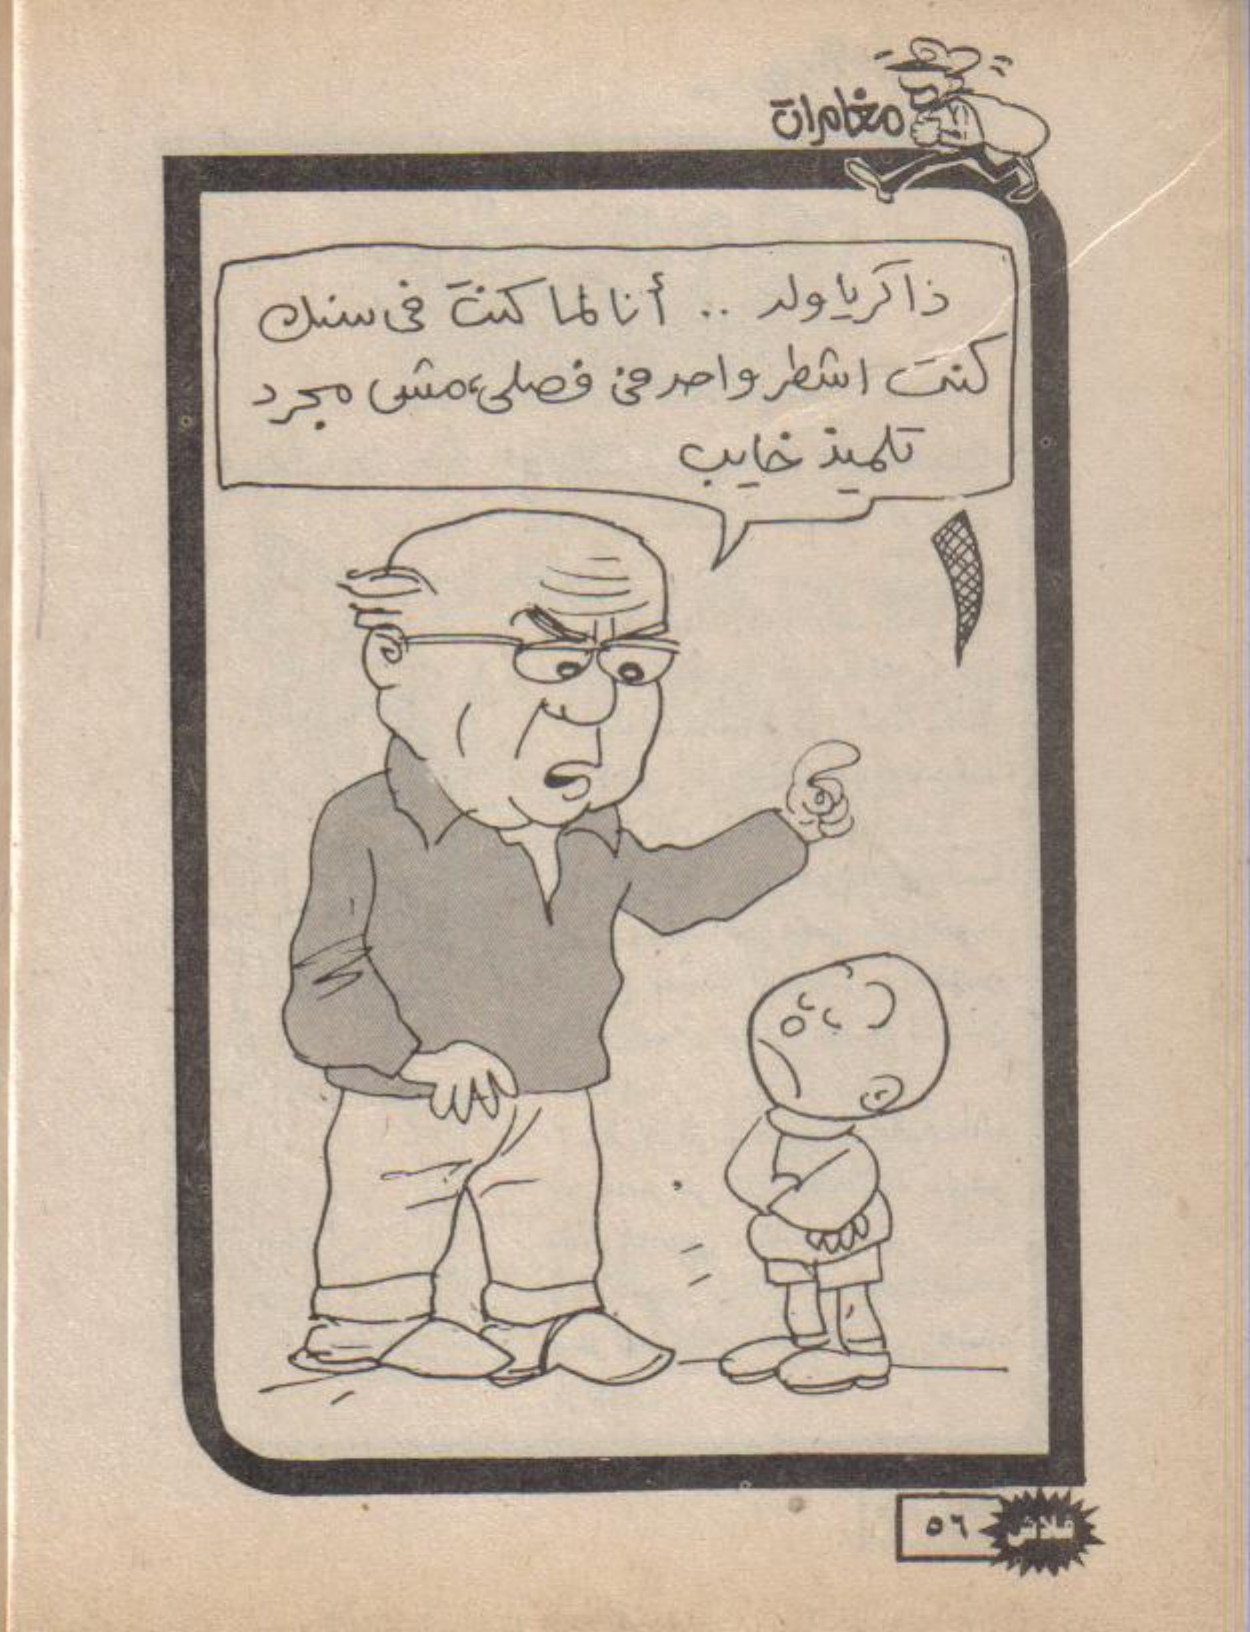 مغامرات
ذاكر يا ولد .. أنا لما كنت فى سنك
كنت اشطر واحد فى فصلى، مش مجرد
تلميذ خايب
٥٦
فلاش